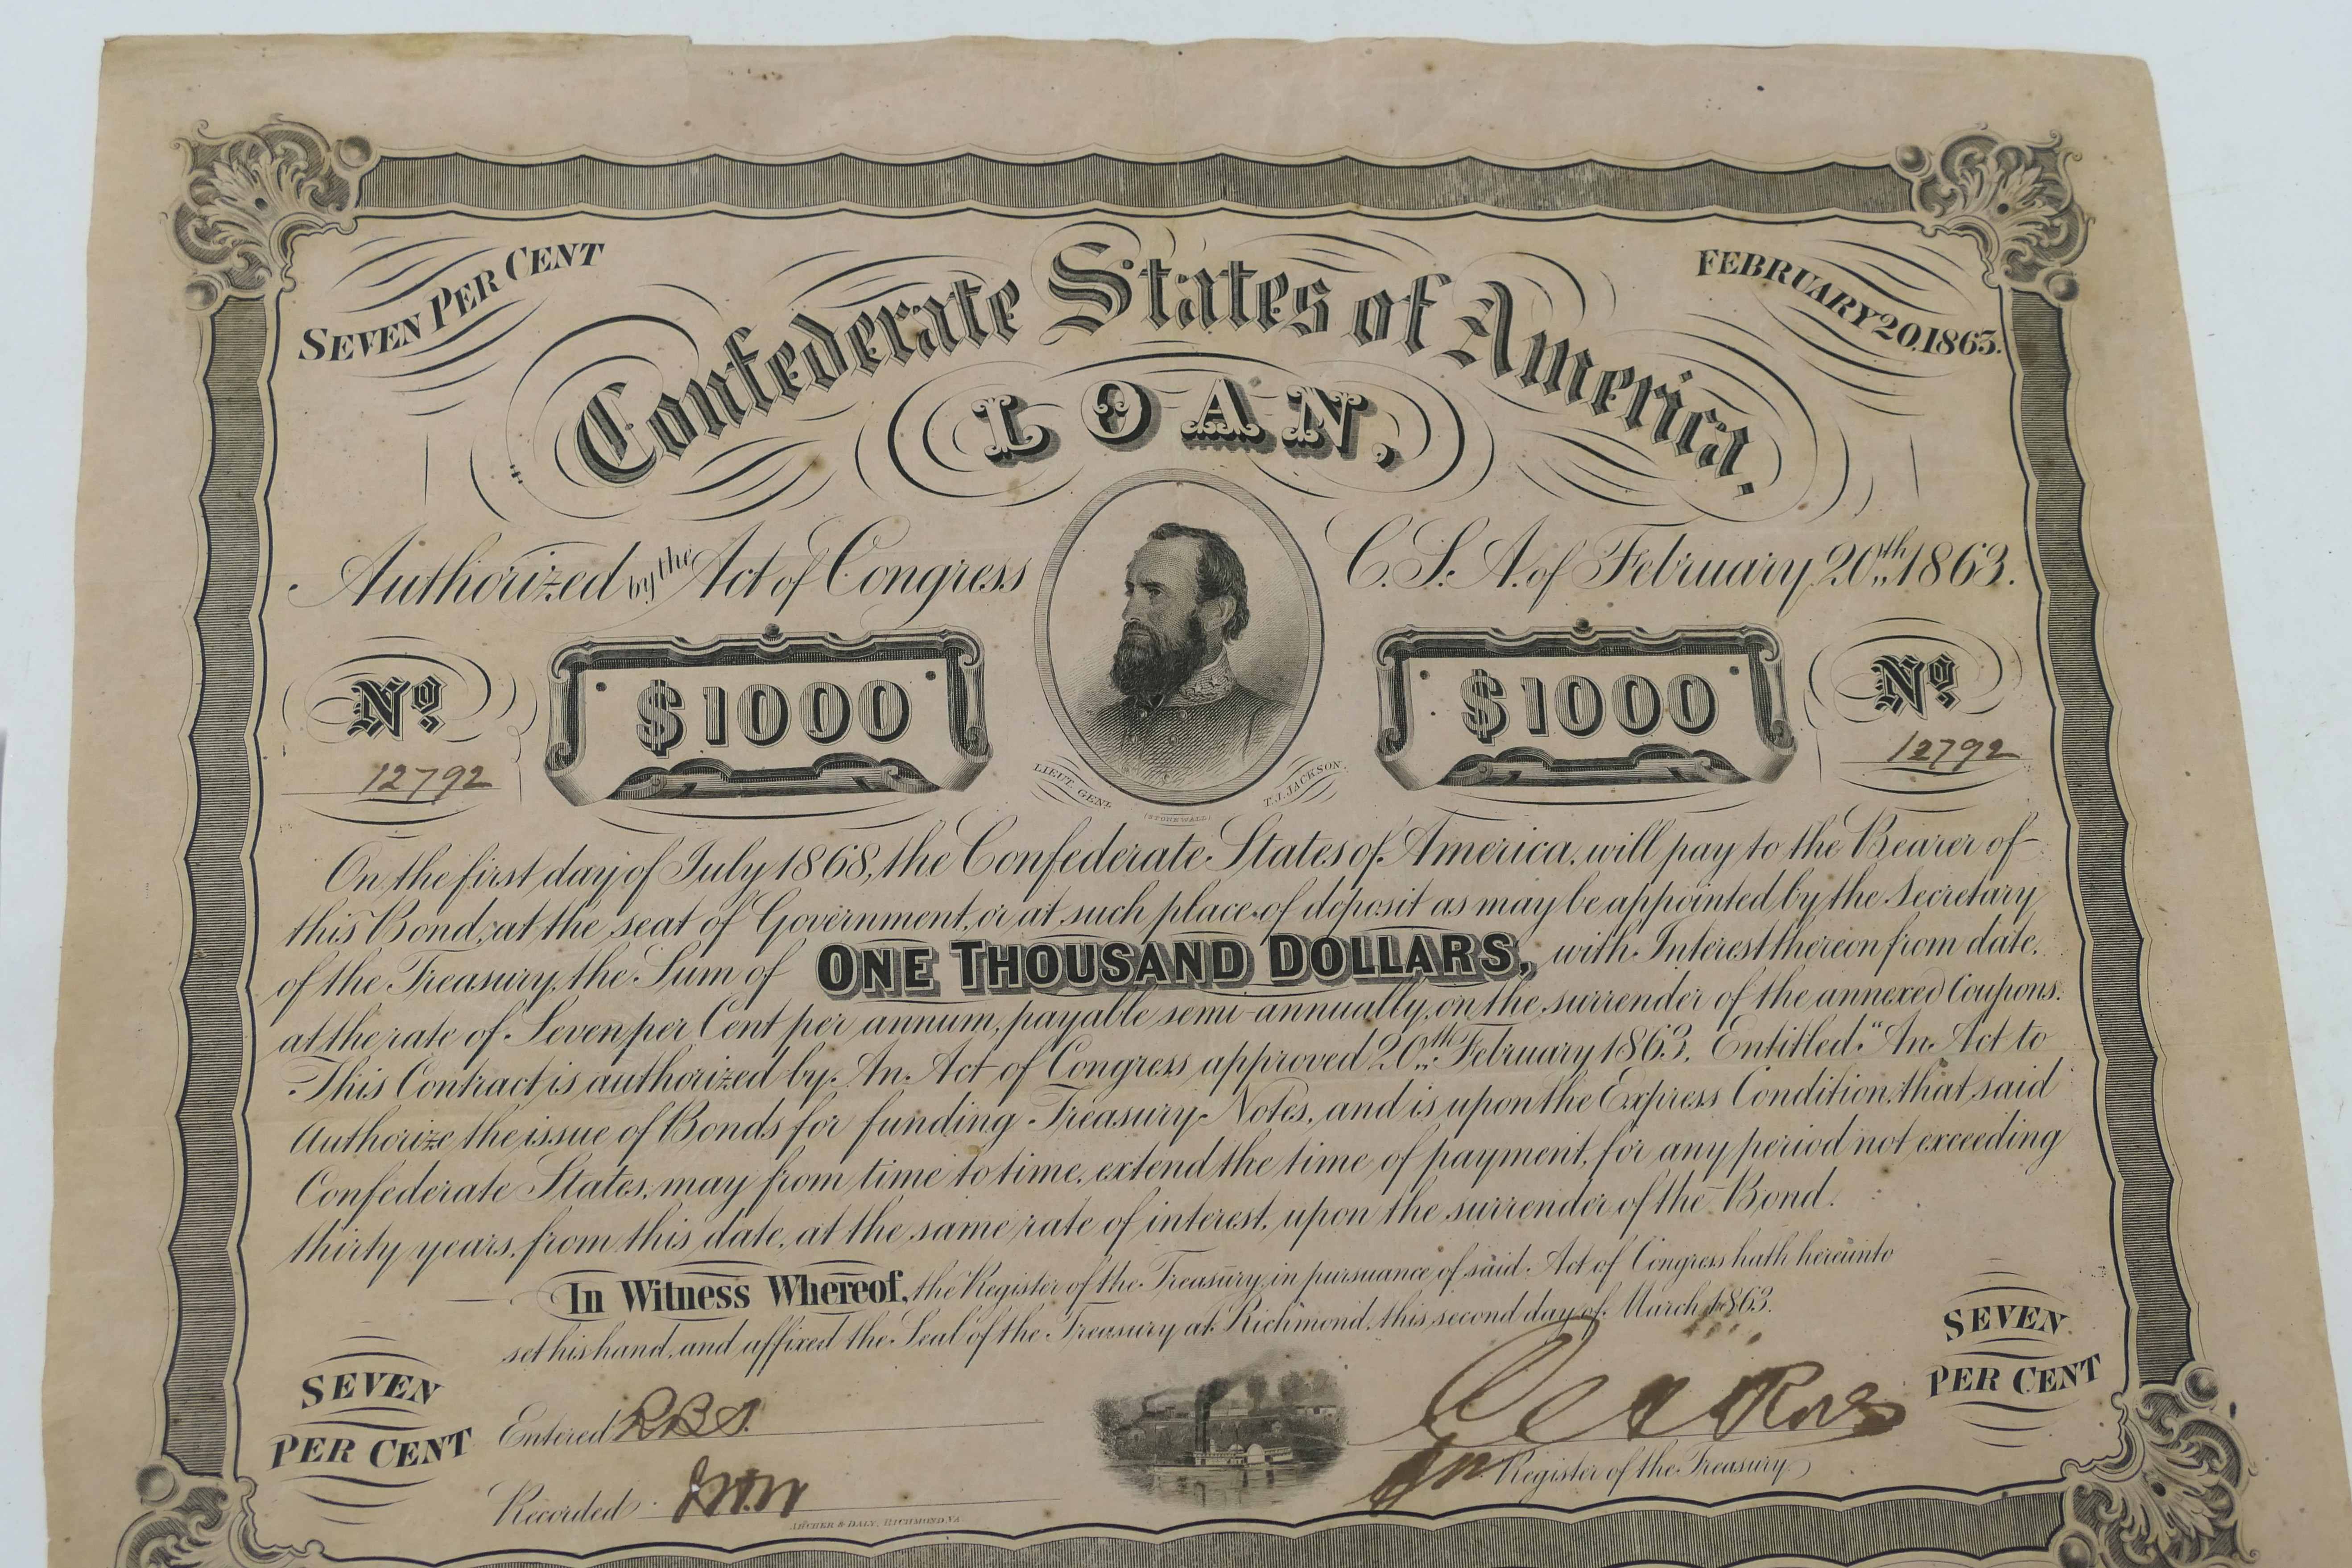 SEVEN PER CENT
FEBRUARY 20, 1863.
Confederate States of America.
LOAN,
Authorized by the Act of Congress C.S.A. of February 20th 1863.
No $1000 $1000 No
12792 12792
LIEUT. GENL. T.J. JACKSON.
(STONEWALL)
On the first day of July 1868, the Confederate States of America, will pay to the Bearer of
this Bond, at the seat of Government, or at such place of deposit as may be appointed by the Secretary
of the Treasury, the Sum of ONE THOUSAND DOLLARS, with Interest thereon from date,
at the rate of Seven per Cent per annum, payable semi-annually, on the surrender of the annexed Coupons.
This Contract is authorized by An Act of Congress approved 20th February 1863, Entitled "An Act to
Authorize the issue of Bonds for funding Treasury Notes, and is upon the Express Condition, that said
Confederate States, may from time to time, extend the time of payment, for any period not exceeding
thirty years, from this date, at the same rate of interest, upon the surrender of the Bond.
In Witness Whereof, the Register of the Treasury, in pursuance of said Act of Congress hath hereunto
set his hand, and affixed the Seal of the Treasury at Richmond, this second day of March 1863.
SEVEN
PER CENT
SEVEN
PER CENT
Entered
Recorded
Register of the Treasury
ARCHER & DALY, RICHMOND, VA.